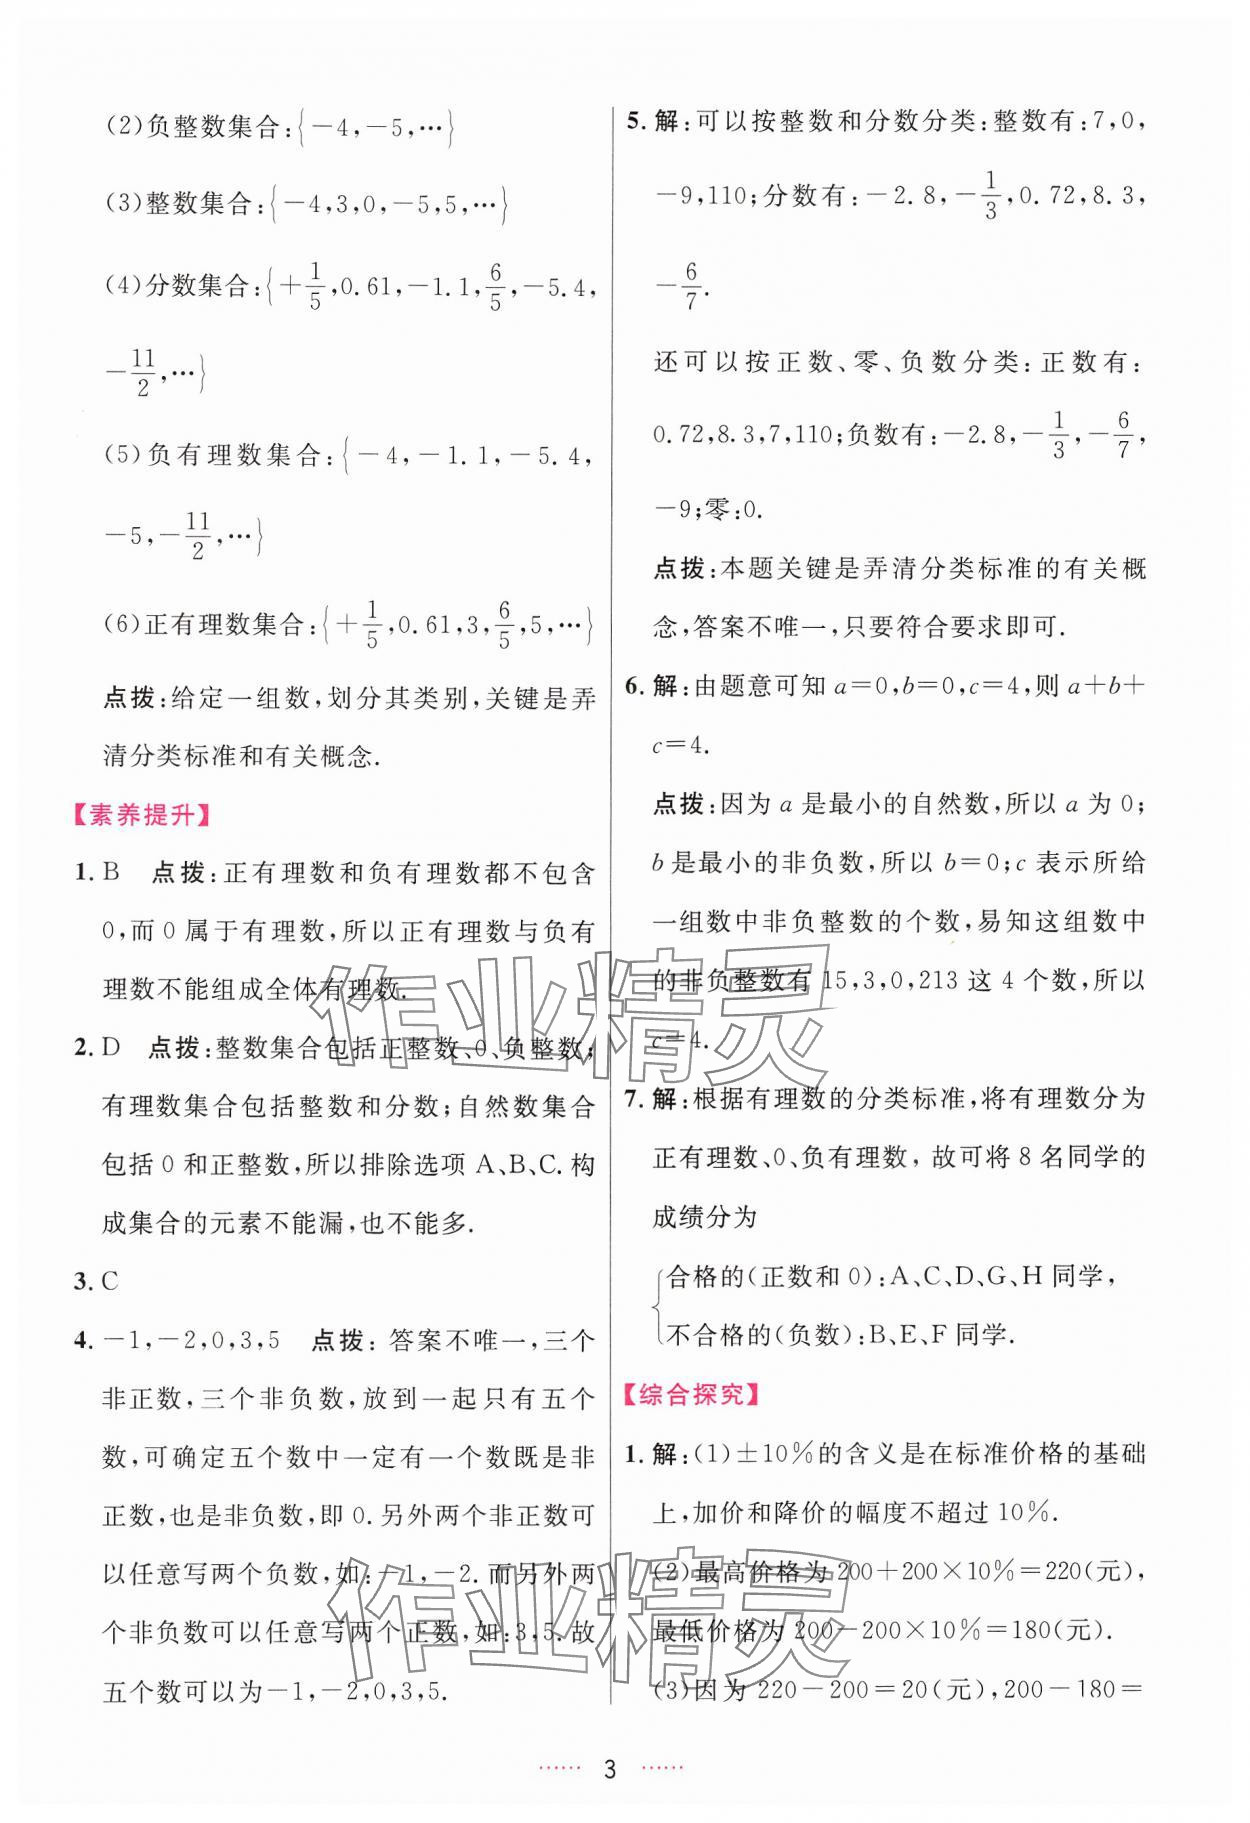 (2)负整数集合:{-4,-5,…}
(3)整数集合:{-4,3,0,-5,5,…}
(4)分数集合:{+1/5,0.61,-1.1,6/5,-5.4,
-11/2,…}
(5)负有理数集合:{-4,-1.1,-5.4,
-5,-11/2,…}
(6)正有理数集合:{+1/5,0.61,3,6/5,5,…}
点拨:给定一组数,划分其类别,关键是弄
清分类标准和有关概念.
【素养提升】
1. B 点拨:正有理数和负有理数都不包含
0,而0属于有理数,所以正有理数与负有
理数不能组成全体有理数.
2. D 点拨:整数集合包括正整数、0、负整数;
有理数集合包括整数和分数;自然数集合
包括0和正整数,所以排除选项A、B、C.构
成集合的元素不能漏,也不能多.
3. C
4. -1,-2,0,3,5 点拨:答案不唯一,三个
非正数,三个非负数,放到一起只有五个
数,可确定五个数中一定有一个数既是非
正数,也是非负数,即0.另外两个非正数可
以任意写两个负数,如:-1,-2.而另外两
个非负数可以任意写两个正数,如:3,5.故
五个数可以为-1,-2,0,3,5.
5. 解:可以按整数和分数分类:整数有:7,0,
-9,110;分数有:-2.8,-1/3,0.72,8.3,
-6/7.
还可以按正数、零、负数分类:正数有:
0.72,8.3,7,110;负数有:-2.8,-1/3,-6/7,
-9;零:0.
点拨:本题关键是弄清分类标准的有关概
念,答案不唯一,只要符合要求即可.
6. 解:由题意可知a=0,b=0,c=4,则a+b+
c=4.
点拨:因为a是最小的自然数,所以a为0;
b是最小的非负数,所以b=0;c表示所给
一组数中非负整数的个数,易知这组数中
的非负整数有15,3,0,213这4个数,所以
c=4.
7. 解:根据有理数的分类标准,将有理数分为
正有理数、0、负有理数,故可将8名同学的
成绩分为
{合格的(正数和0):A、C、D、G、H同学,
不合格的(负数):B、E、F同学.
【综合探究】
1. 解:(1)±10%的含义是在标准价格的基础
上,加价和降价的幅度不超过10%.
(2)最高价格为200+200×10%=220(元),
最低价格为200-200×10%=180(元).
(3)因为220-200=20(元),200-180=
······ 3 ······
作业精灵
作业精灵